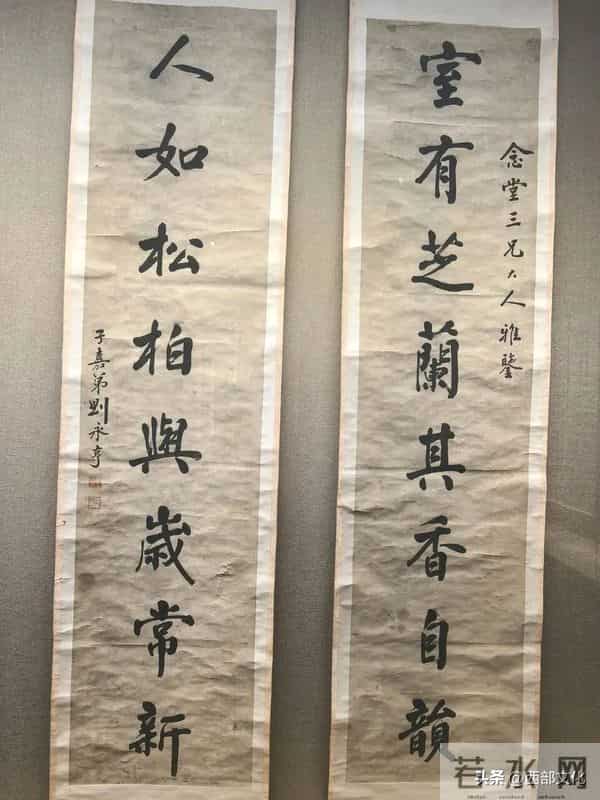 念堂三兄大人雅鑒
室有芝蘭其香自韻
人如松柏與歲常新
子嘉弟劉永亨
若水网
头条 @西部文化